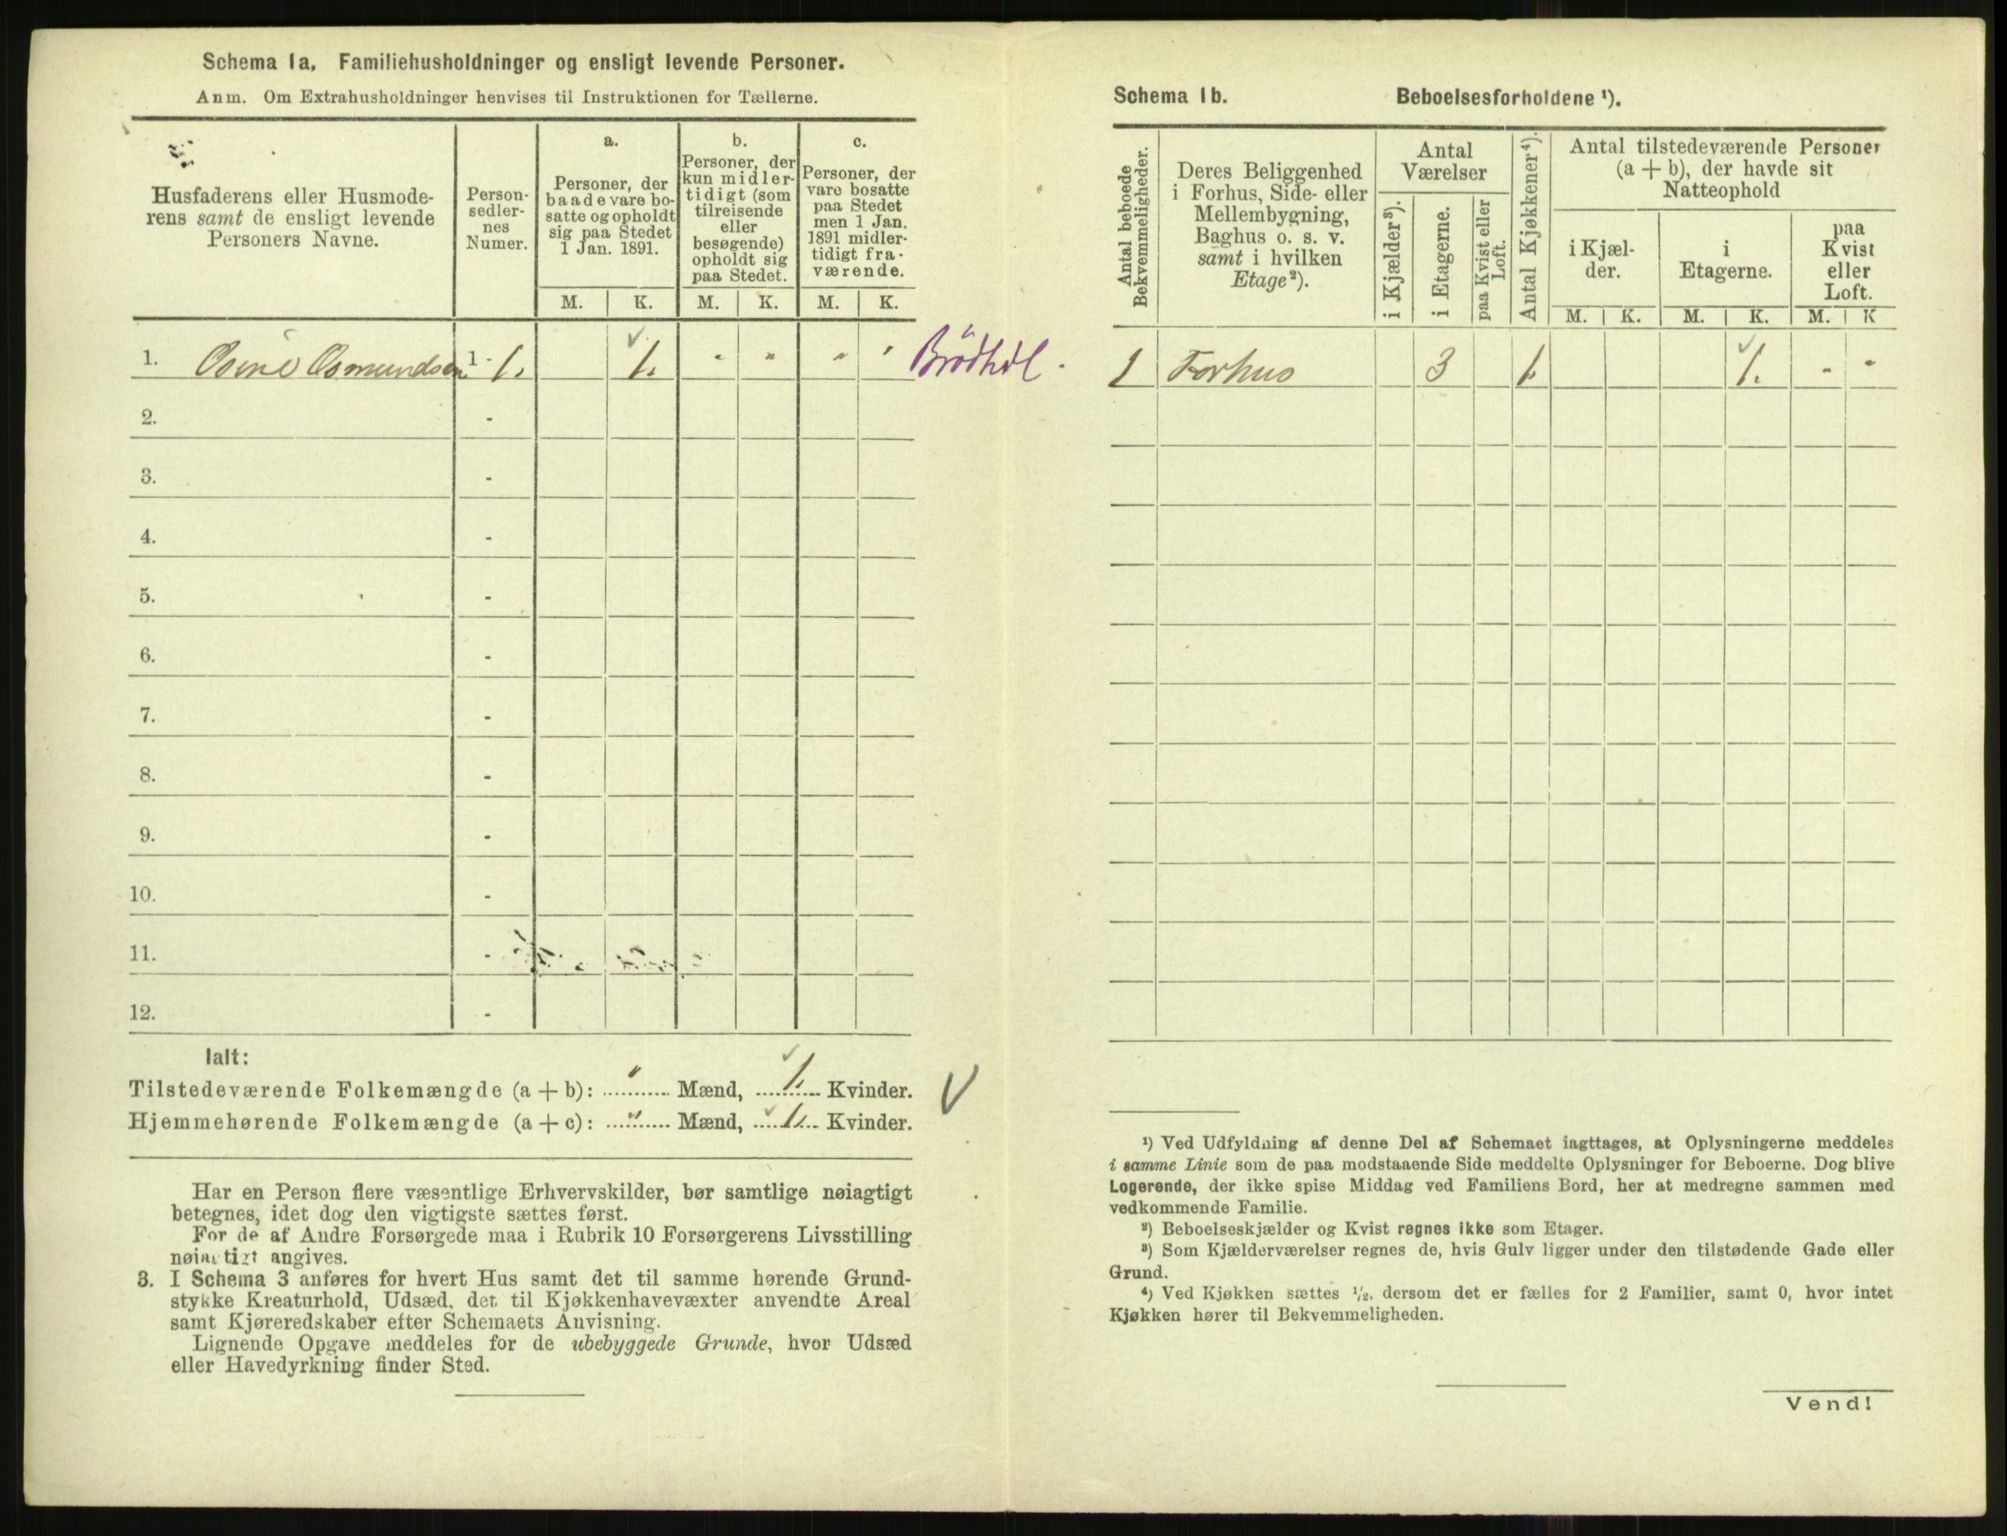 Schema 1a. Familiehusholdninger og ensligt levende Personer.
Anm. Om Extrahusholdninger henvises til Instruktionen for Tællerne.
Husfaderens eller Husmode-
rens samt de ensligt levende
Personers Navne.
Person-
sedler-
nes
Numer.
a.
Personer, der
baade vare bo-
satte og opholdt
sig paa Stedet
1 Jan. 1891.
b.
Personer, der
kun midler-
tidigt (som
tilreisende
eller
besøgende)
opholdt sig
paa Stedet.
c.
Personer, der
vare bosatte
paa Stedet
men 1 Jan.
1891 midler-
tidigt fra-
værende.
M. K. M. K. M. K.
1. Osmundsen 1 - 1. 1. " " " " Brødhdl.
2. -
3. -
4. -
5. -
6. -
7. -
8. -
9. -
10. -
11. -
12. -
Ialt:
Tilstedeværende Folkemængde (a + b): " Mænd, 1. Kvinder.
Hjemmehørende Folkemængde (a + c): " Mænd, 1. Kvinder.
Har en Person flere væsentlige Erhvervskilder, bør samtlige nøiagtigt
betegnes, idet dog den vigtigste sættes først.
For de af Andre Forsørgede maa i Rubrik 10 Forsørgerens Livsstilling
nøiagtigt angives.
3. I Schema 3 anføres for hvert Hus samt det til samme hørende Grund-
stykke Kreaturhold, Udsæd, det til Kjøkkenhavevæxter anvendte Areal
samt Kjøreredskaber efter Schemaets Anvisning.
Lignende Opgave meddeles for de ubebyggede Grunde, hvor Udsæd
eller Havedyrkning finder Sted.
Schema 1b. Beboelsesforholdene ¹).
Antal beboede
Bekvemmeligheder.
Deres Beliggenhed
i Forhus, Side- eller
Mellembygning,
Baghus o. s. v.
samt i hvilken
Etage²).
Antal
Værelser
i Kjælder³).
i Etagerne.
paa Kvist eller
Loft.
Antal Kjøkkener⁴).
Antal tilstedeværende Personer
(a + b), der havde sit
Natteophold
i Kjæl-
der.
i
Etagerne.
paa
Kvist
eller
Loft.
M. K. M. K. M. K
1 Forhus 3 1. 1. " "
¹) Ved Udfyldning af denne Del af Schemaet iagttages, at Oplysningerne meddeles
i samme Linie som de paa modstaaende Side meddelte Oplysninger for Beboerne. Dog blive
Logerende, der ikke spise Middag ved Familiens Bord, her at medregne sammen med
vedkommende Familie.
²) Beboelseskjælder og Kvist regnes ikke som Etager.
³) Som Kjælderværelser regnes de, hvis Gulv ligger under den tilstødende Gade eller
Grund.
⁴) Ved Kjøkken sættes ¹/₂, dersom det er fælles for 2 Familier, samt 0, hvor intet
Kjøkken hører til Bekvemmeligheden.
Vend!